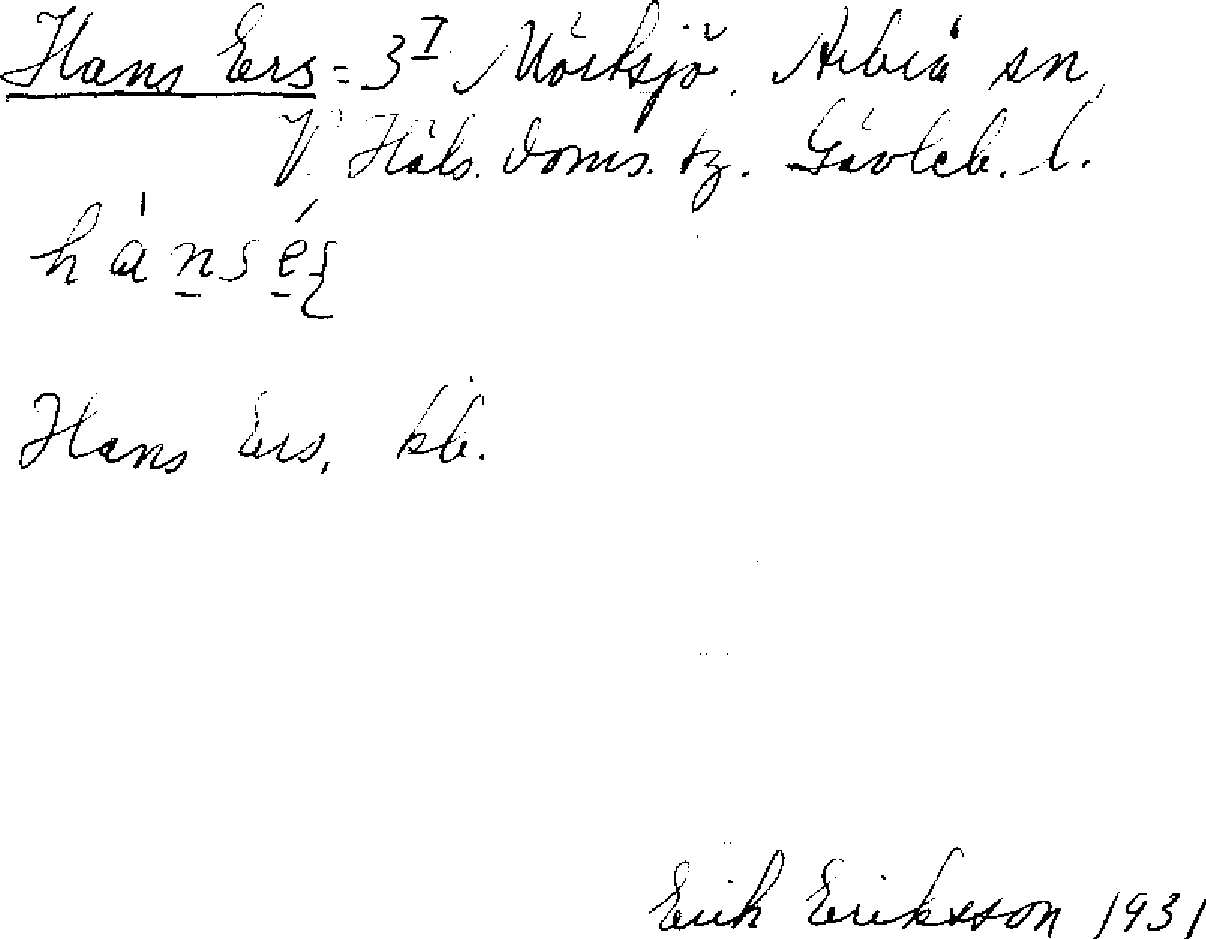 Hans Ers = 3^I Mörtsjö. Arbrå sn,
V. Häls. doms. tz. Gävleb. l.
Hans Ers, kb.
Erik Eriksson 1931